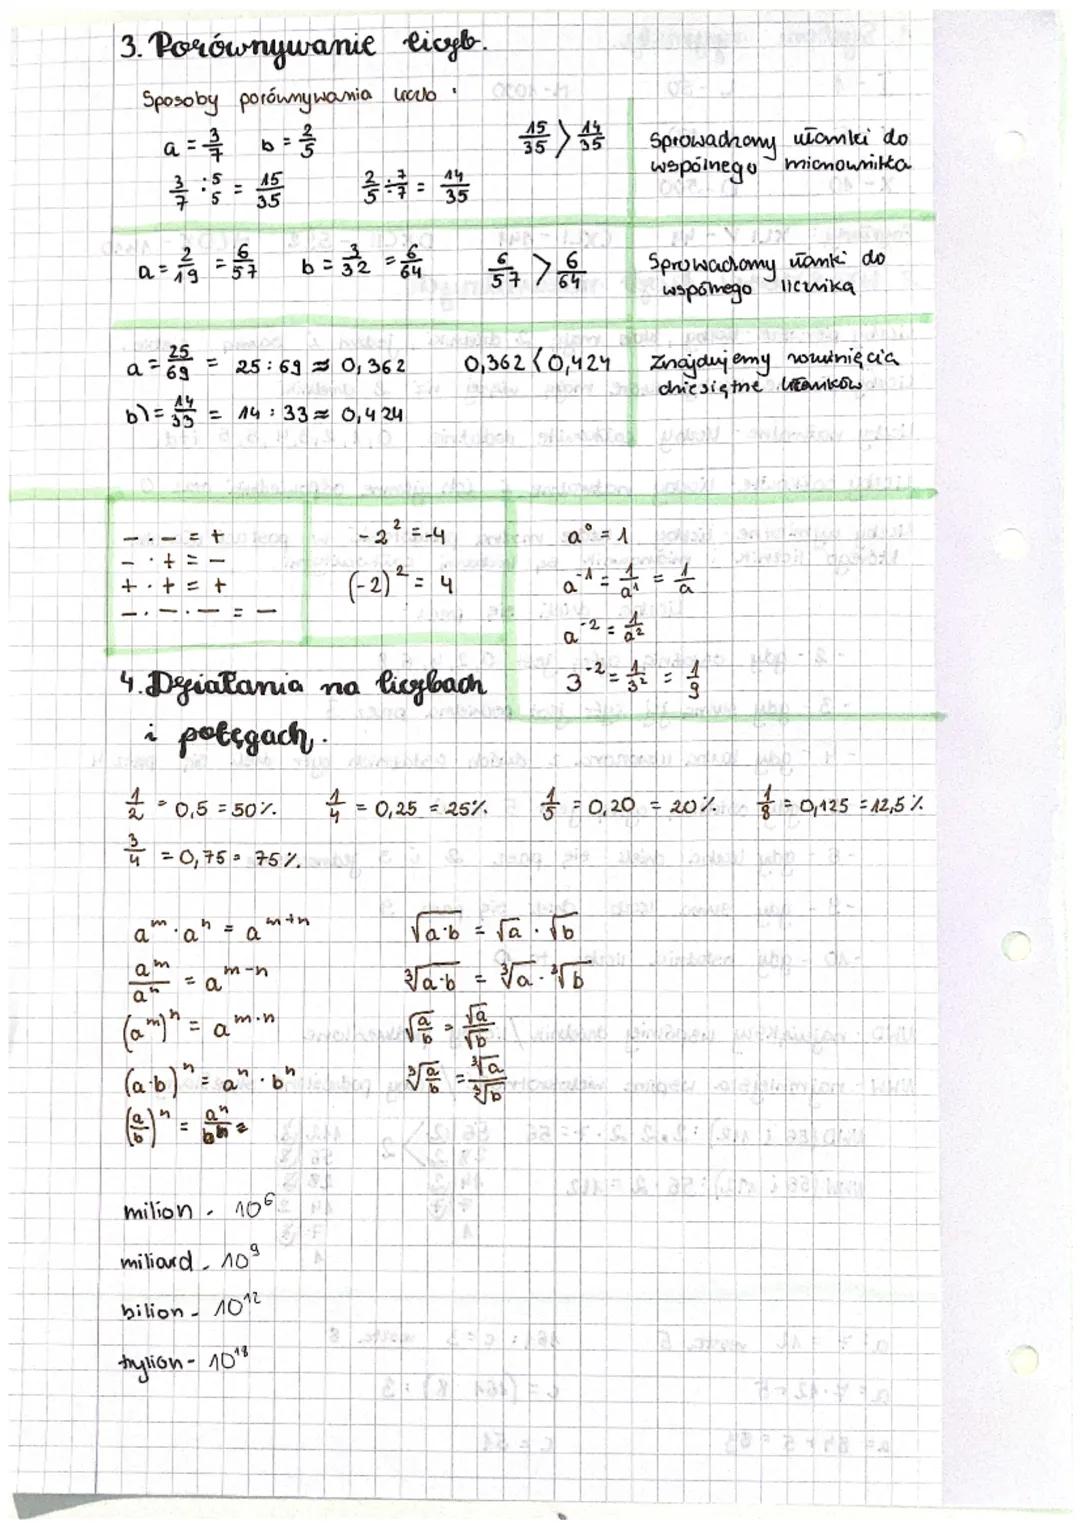 3. Porównywanie liczb.
Sposoby porównywania liczb:
a = 3/7 b = 2/5 15/35 > 14/35 Sprowadzamy ułamki do
wspólnego mianownika
3/7 : 5/5 = 15/35 2/5 : 7/7 = 14/35
a = 2/19 = 6/57 b = 3/32 = 6/64 6/57 > 6/64 Sprowadzamy ułamki do
wspólnego licznika
a = 25/69 = 25 : 69 ≈ 0,362 0,362 < 0,424 Znajdujemy rozwinięcia
dziesiętne ułamków
b) = 14/33 = 14 : 33 ≈ 0,424
- · - = +
- · + = -
+ · + = +
- · - · - = -
-2² = -4
(-2)² = 4
a⁰ = 1
a⁻¹ = 1/a¹ = 1/a
a⁻² = 1/a²
3⁻² = 1/3² = 1/9
4. Działania na liczbach
i potęgach.
1/2 = 0,5 = 50% 1/4 = 0,25 = 25% 1/5 = 0,20 = 20% 1/8 = 0,125 = 12,5%
3/4 = 0,75 = 75%
aᵐ · aⁿ = aᵐ⁺ⁿ √(a·b) = √a · √b
aᵐ/aⁿ = aᵐ⁻ⁿ ³√(a·b) = ³√a · ³√b
(aᵐ)ⁿ = a^(m·n) √(a/b) = √a/√b
(a·b)ⁿ = aⁿ · bⁿ ³√(a/b) = ³√a/³√b
(a/b)ⁿ = aⁿ/bⁿ =
milion - 10⁶
miliard - 10⁹
bilion - 10¹²
trylion - 10¹⁸